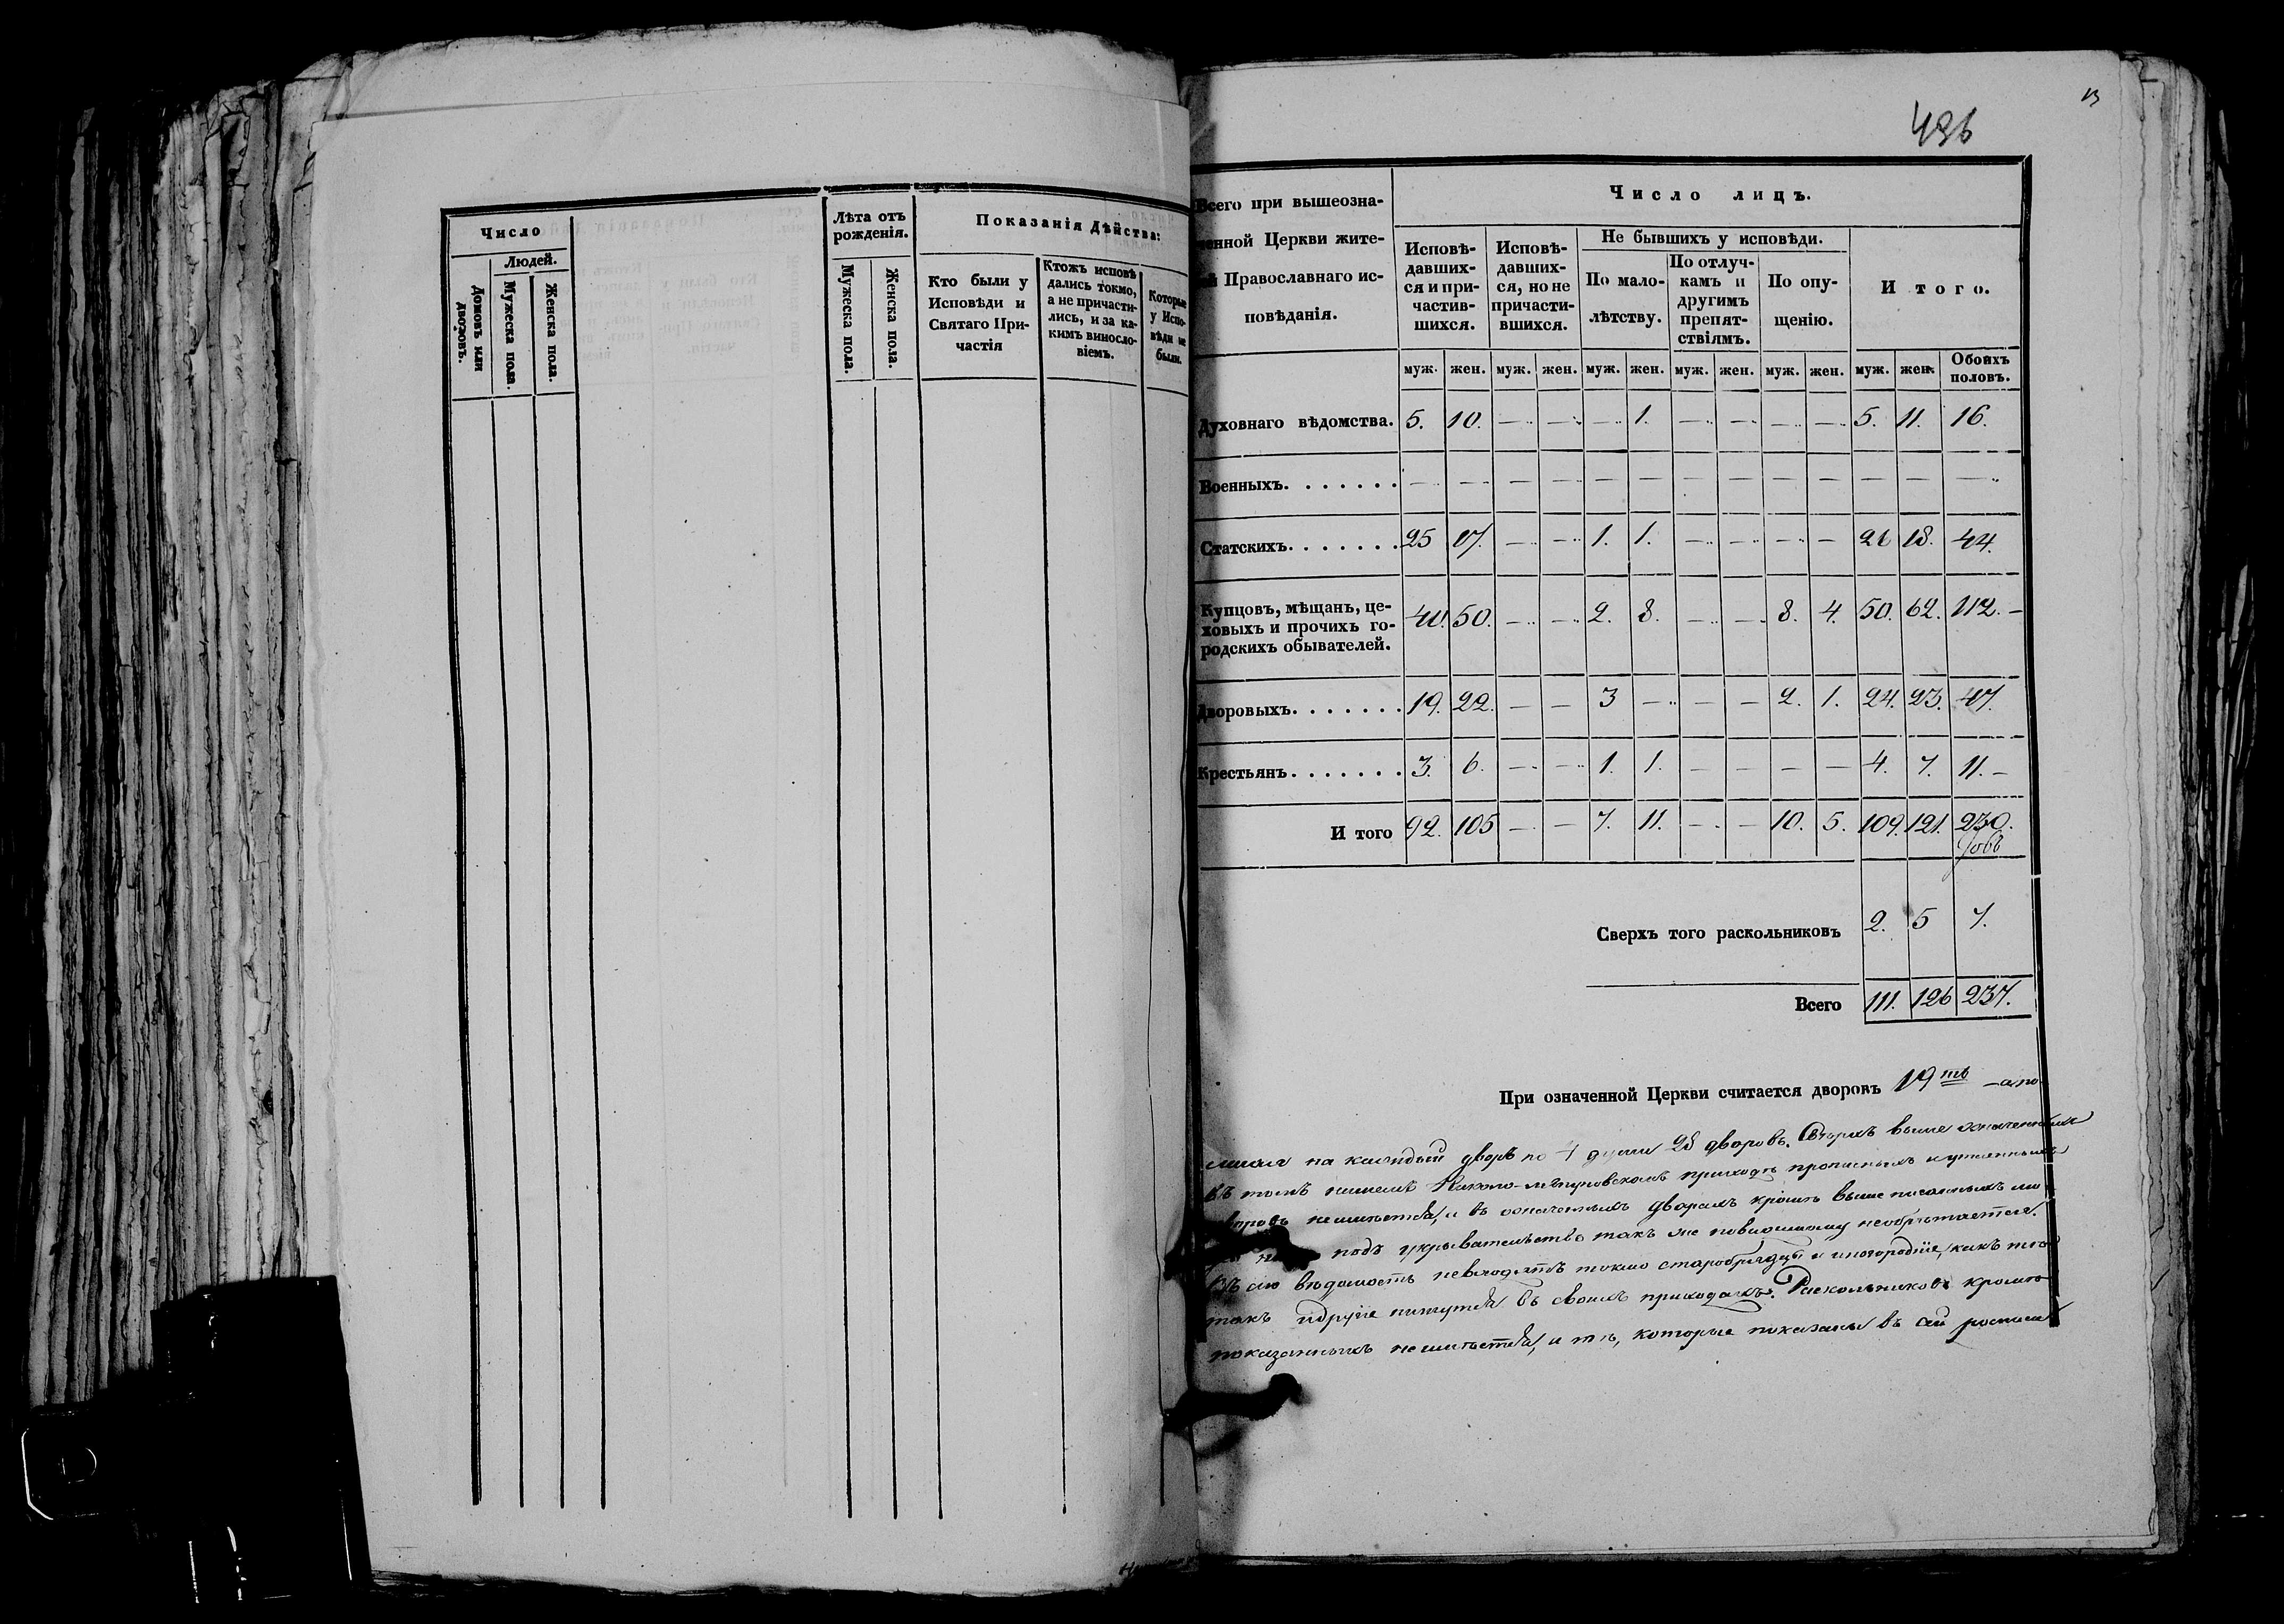 Число
Людей.
Домовъ или
дворовъ.
Мужеска пола.
Женска пола.
Лѣта отъ
рожденія.
Мужеска пола.
Женска пола.
Показанія Дѣйства:
Кто были у
Исповѣди и
Святаго При-
частія
Ктожъ исповѣ
дались токмо,
а не причасти-
лись, и за ка-
кимъ винословіемъ.
Которые
у Испо-
вѣди не
были.
13
496
Всего при вышеозна-
ченной Церкви жите-
лей Православнаго ис-
повѣданія.
Число лицъ.
Исповѣ-
давших-
ся и при-
частив-
шихся.
Исповѣ-
давших-
ся, но не
причасти-
вшихся.
Не бывшихъ у исповѣди.
По мало-
лѣтству.
По отлуч-
камъ и
другимъ
препят-
ствіямъ.
По опу-
щенію.
Итого.
муж. жен. муж. жен. муж. жен. муж. жен. муж. жен. муж. жен. Обоихъ
половъ.
Духовнаго вѣдомства. 5. 10. — — — 1. — — — — 5. 11. 16.
Военныхъ. . . . . . . — — — — — — — — — — — — —
Статскихъ. . . . . . . 25 17. — — 1. 1. — — — — 26 18. 44.
Купцовъ, мѣщанъ, це-
ховыхъ и прочихъ го-
родскихъ обывателей.
40. 50. — — 2. 8. — — 8. 4. 50. 62. 112. —
Дворовыхъ. . . . . . . 19. 22. — — 3 — — — 2. 1. 24. 23. 47.
Крестьянъ. . . . . . . 3. 6. — — 1. 1. — — — — 4. 7. 11. —
И того 92. 105 — — 7. 11. — — 10. 5. 109. 121. 230.
Сверхъ того раскольниковъ 2. 5 7.
Всего 111. 126 237.
При означенной Церкви считается дворовъ 19ть — а по
на каждый дворъ по 4 души 28 дворовъ. Сверхъ выше означенныхъ
въ томъ приходѣ прописныхъ и утаенныхъ
дворовъ не имѣется, и въ означенныхъ дворахъ кромѣ выше писанныхъ
подъ укрывательство такъ же необрѣтается.
Въ сію вѣдомость невходятъ токмо старобрядцы и иногородніе, какъ тѣ
такъ и другіе пишутся въ своихъ приходахъ. Раскольниковъ кромѣ
показанныхъ не имѣется, и тѣ, которые показаны въ сей росписи